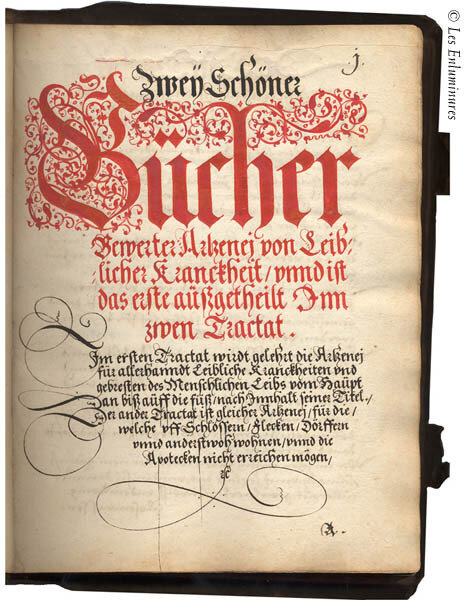 1.
Zweÿ Schöner
Bücher
Bewerter Artzenej von Leib-
licher Kranckheit / vnnd ist
das erste aüßgetheilt Inn
zwen Tractat.
Im ersten Tractat wirdt gelehrt die Artzenej
für allerhanndt Leibliche Kranckheiten vnd
gebresten des Menschlichen Leibs vom Haupt
an biß aüff die füß / nach Innhalt seiner Titel.
Der ander Tractat ist gleicher Artzenej / für die /
welche vff Schlössern / Flecken / Dörffern
vnnd anderstwoh wohnen / vnnd die
Apotecken nicht erreichen mögen /
A.
© Les Enluminures